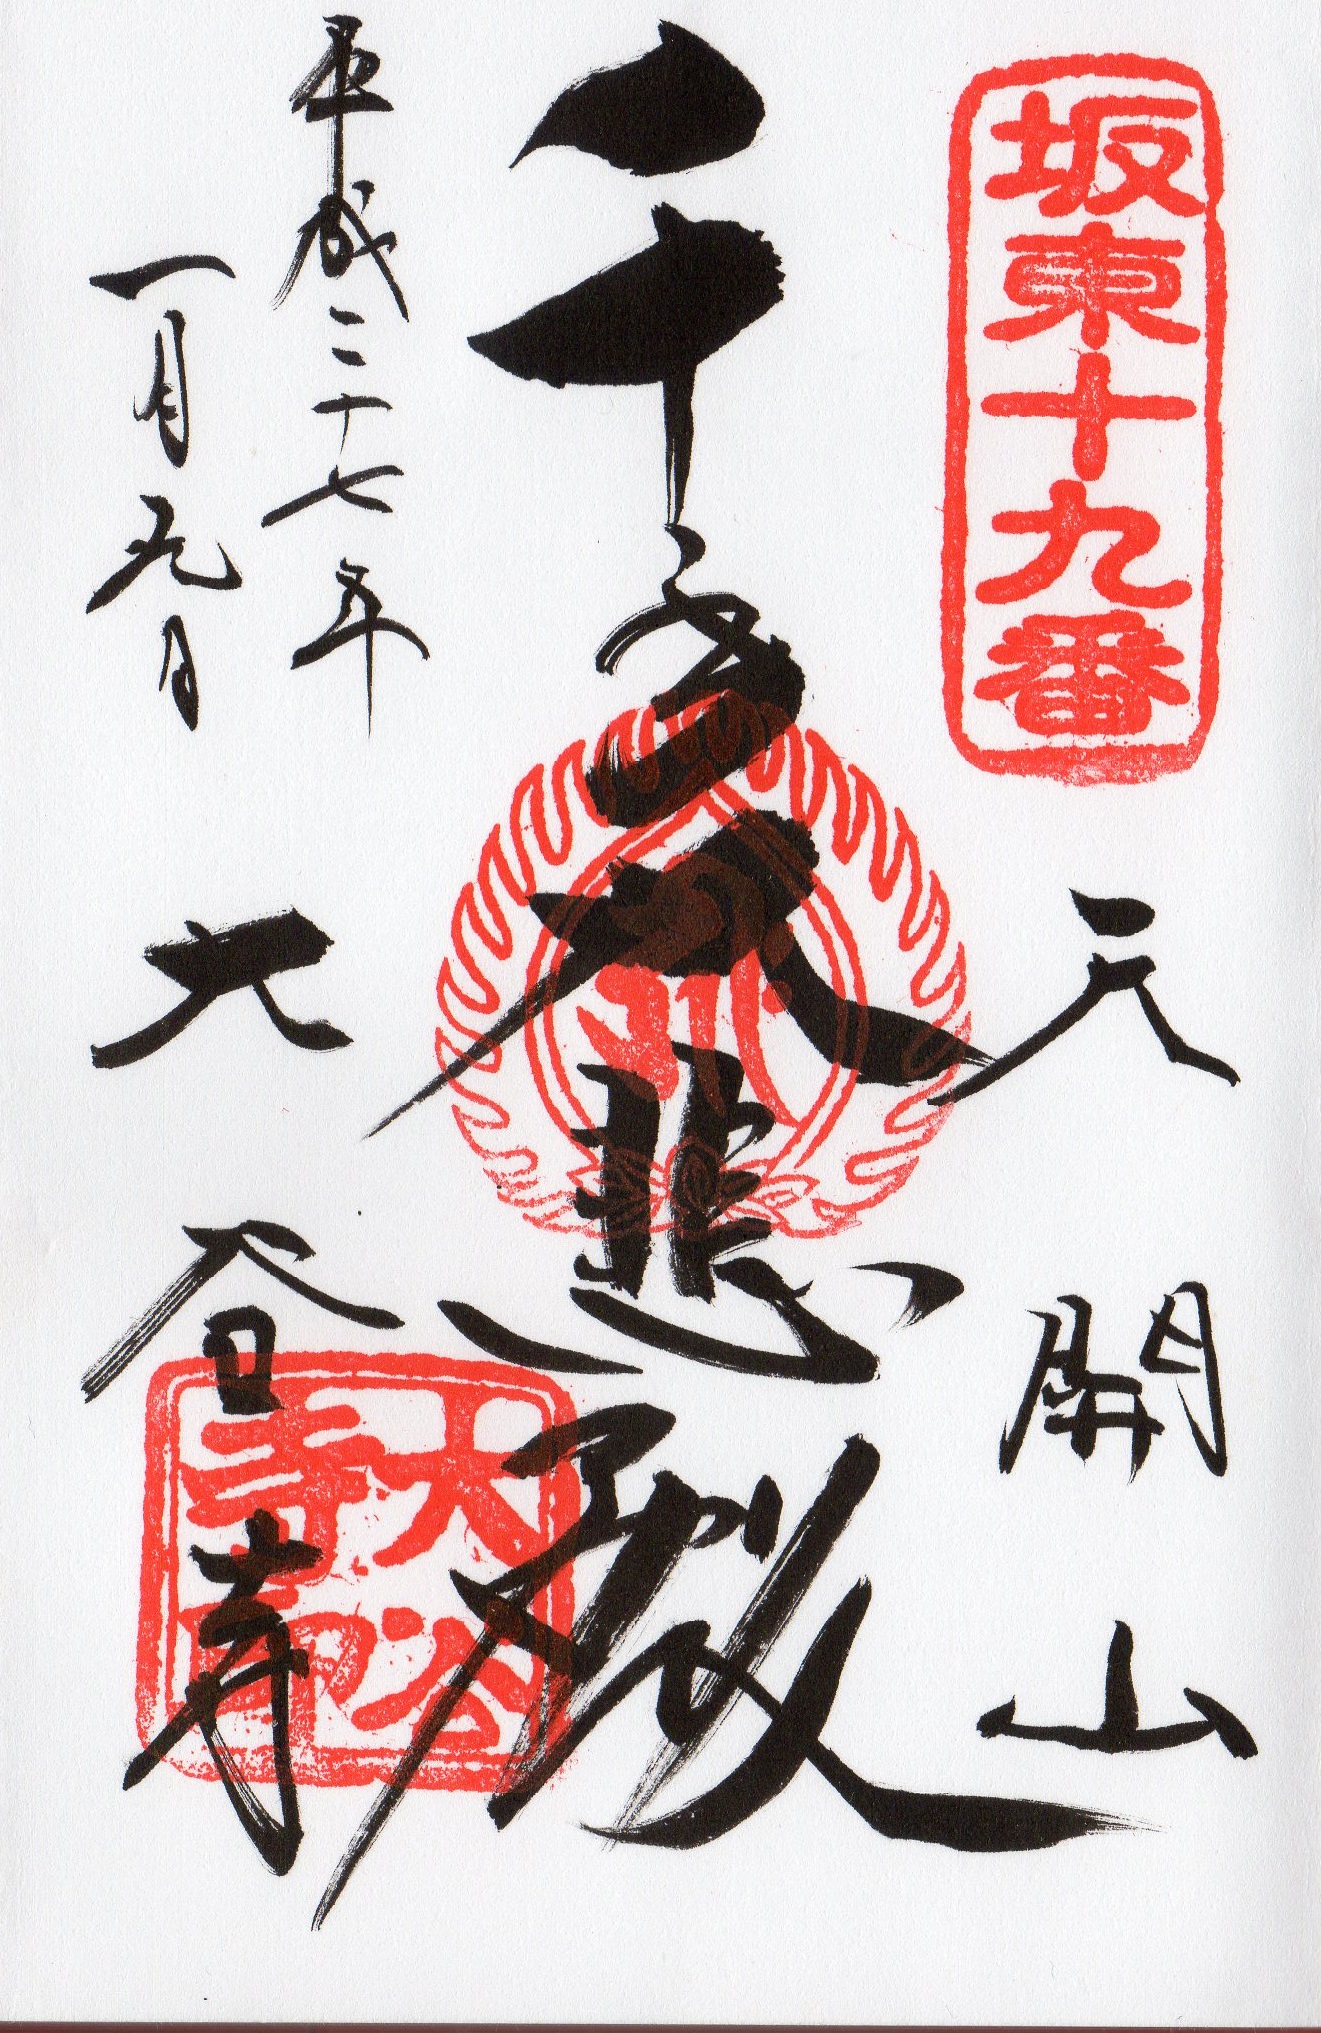 坂東十九番
天開山
千手大悲殿
平成二十七年
一月 日
大谷寺
大谷
寺印